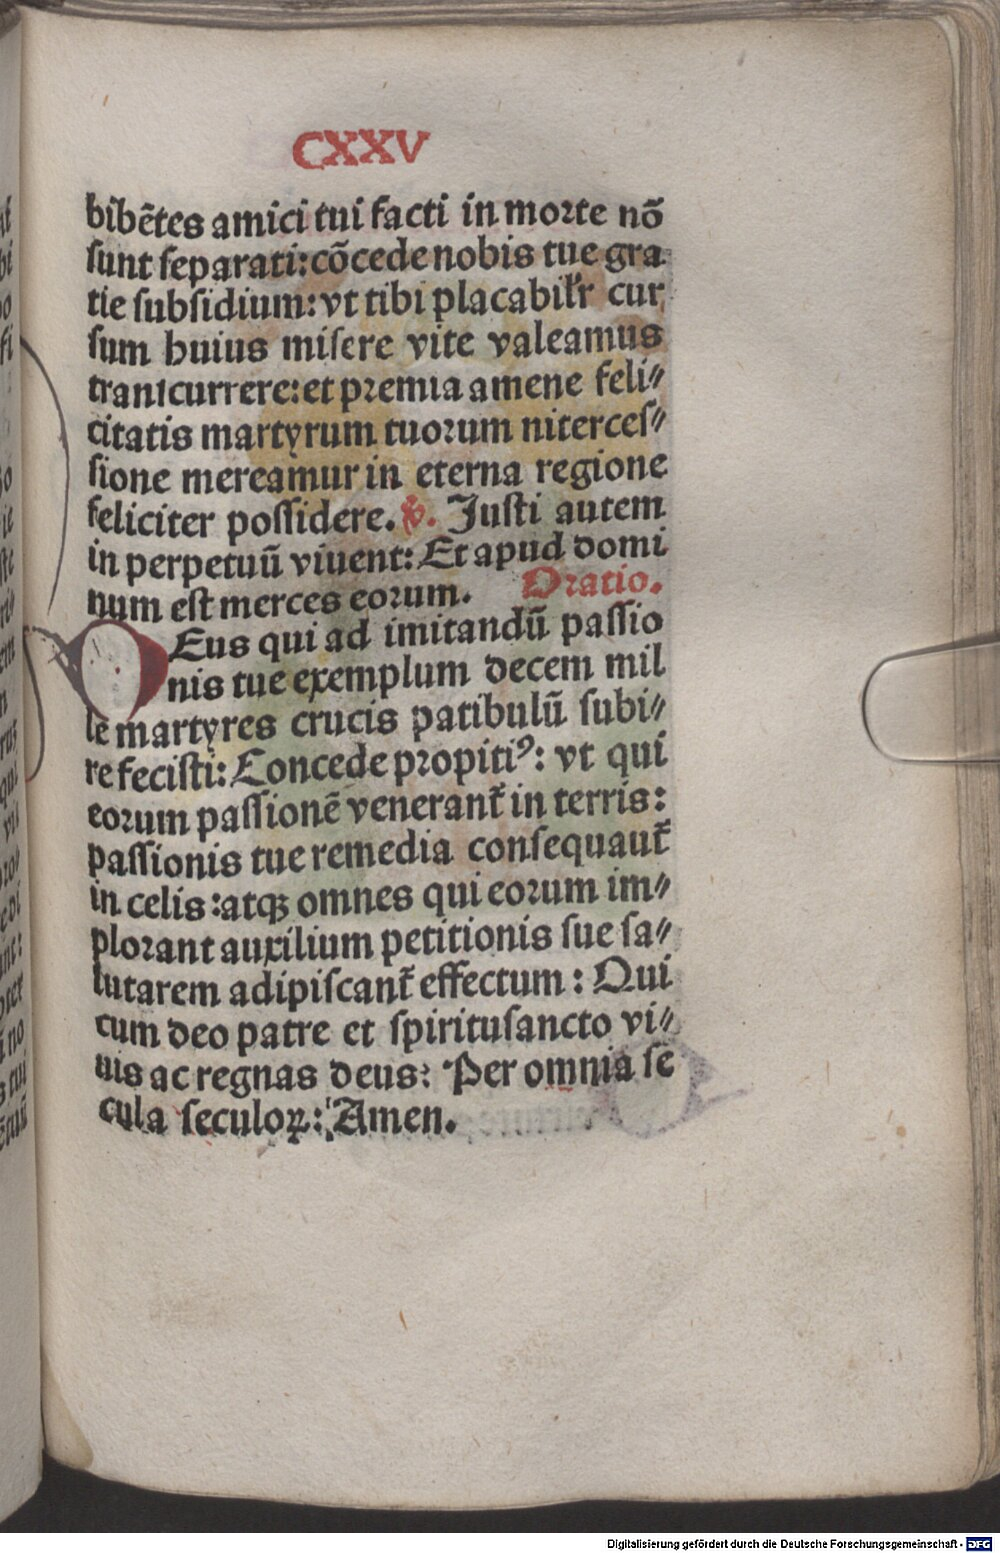 CXXV
bibētes amici tui facti in morte nō
sunt separati: cōcede nobis tue gra
tie subsidium: vt tibi placabilr̄ cur
sum huius misere vite valeamus
transcurrere: et premia amene feli⸗
citatis martyrum tuorum niterces⸗
sione mereamur in eterna regione
feliciter possidere. ℣. Justi autem
in perpetuū viuent: Et apud domi
num est merces eorum. Oratio.
DEus qui ad imitandū passio
nis tue exemplum decem mil
le martyres crucis patibulū subi⸗
re fecisti: Concede propitiꝰ: vt qui
eorum passionē venerant̄ in terris:
passionis tue remedia consequaut̄
in celis: atqꝫ omnes qui eorum im⸗
plorant auxilium petitionis sue sa⸗
lutarem adipiscant̄ effectum: Qui
cum deo patre et spiritusancto vi⸗
uis ac regnas deus: Per omnia se
cula seculoꝝ: Amen.
Digitalisierung gefördert durch die Deutsche Forschungsgemeinschaft - DFG